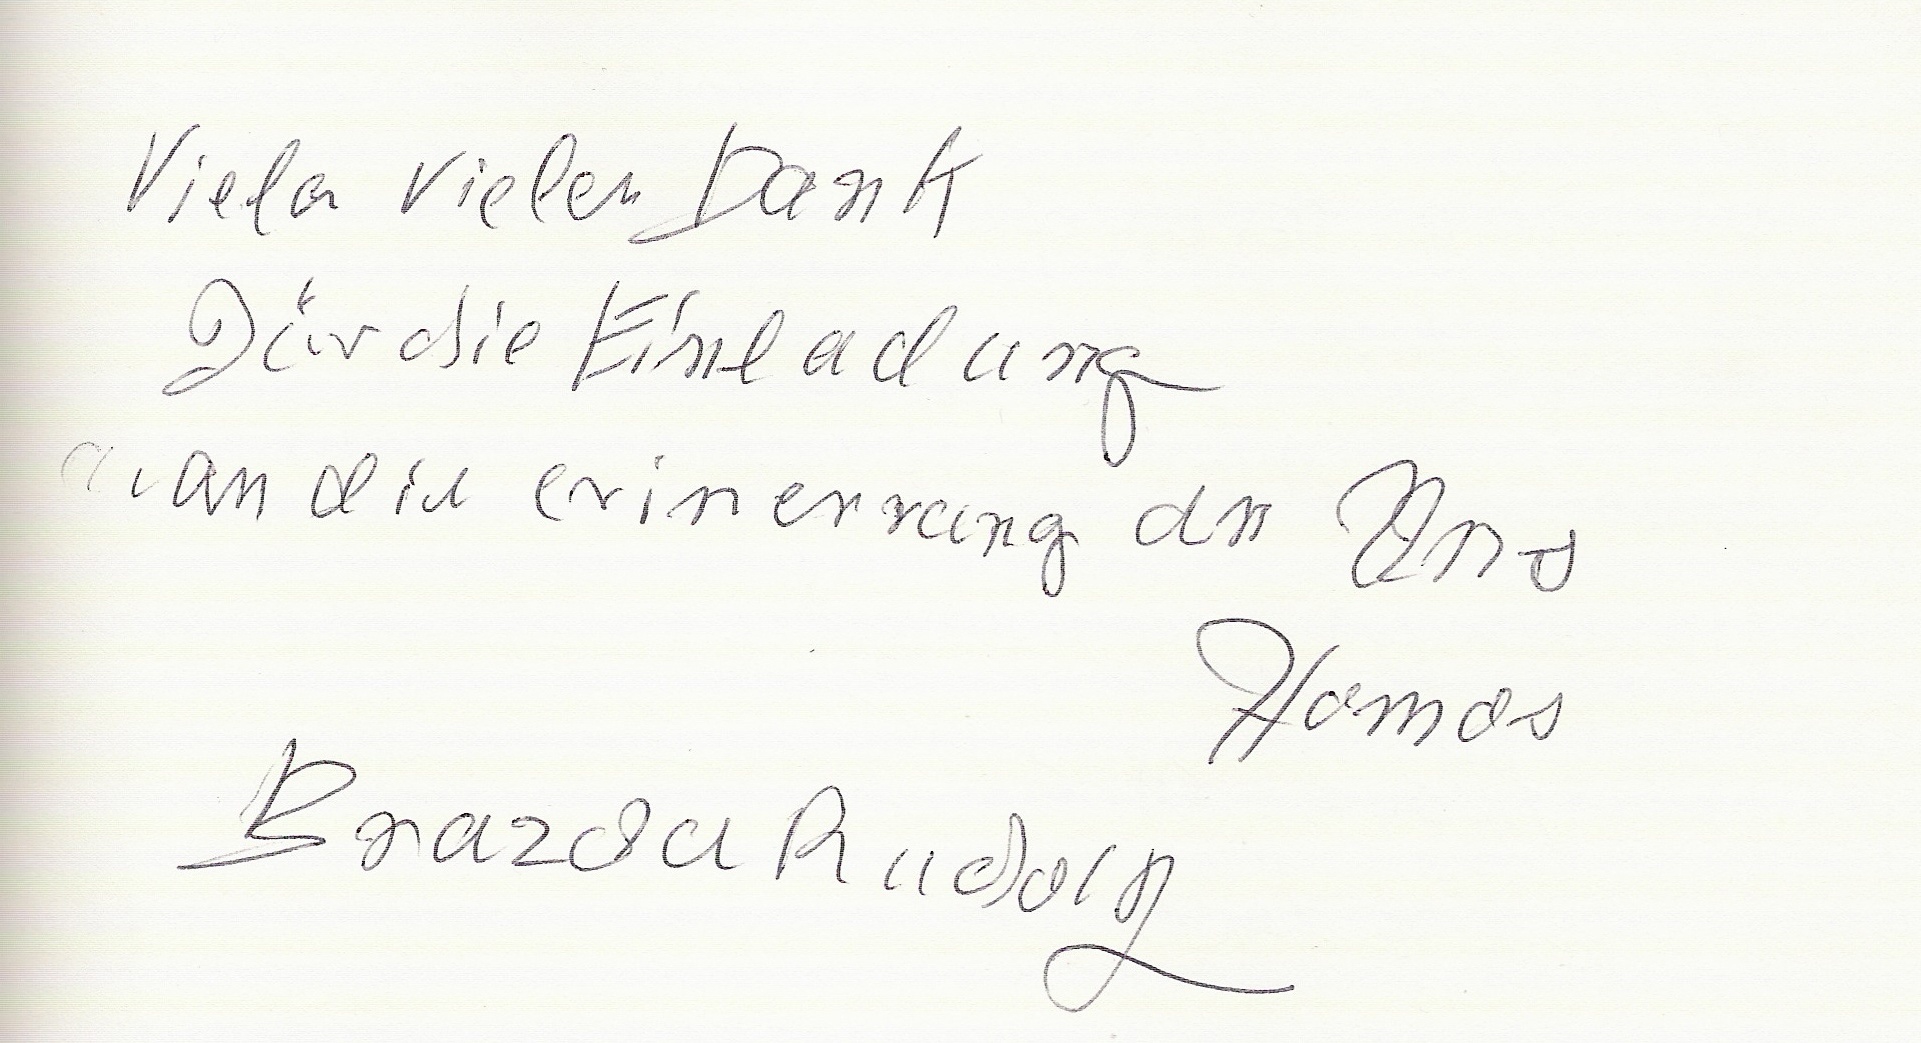 Vielen vielen Dank
Für die Einladung
an die erinerrung an Uns
Homos
Brazda Rudolf